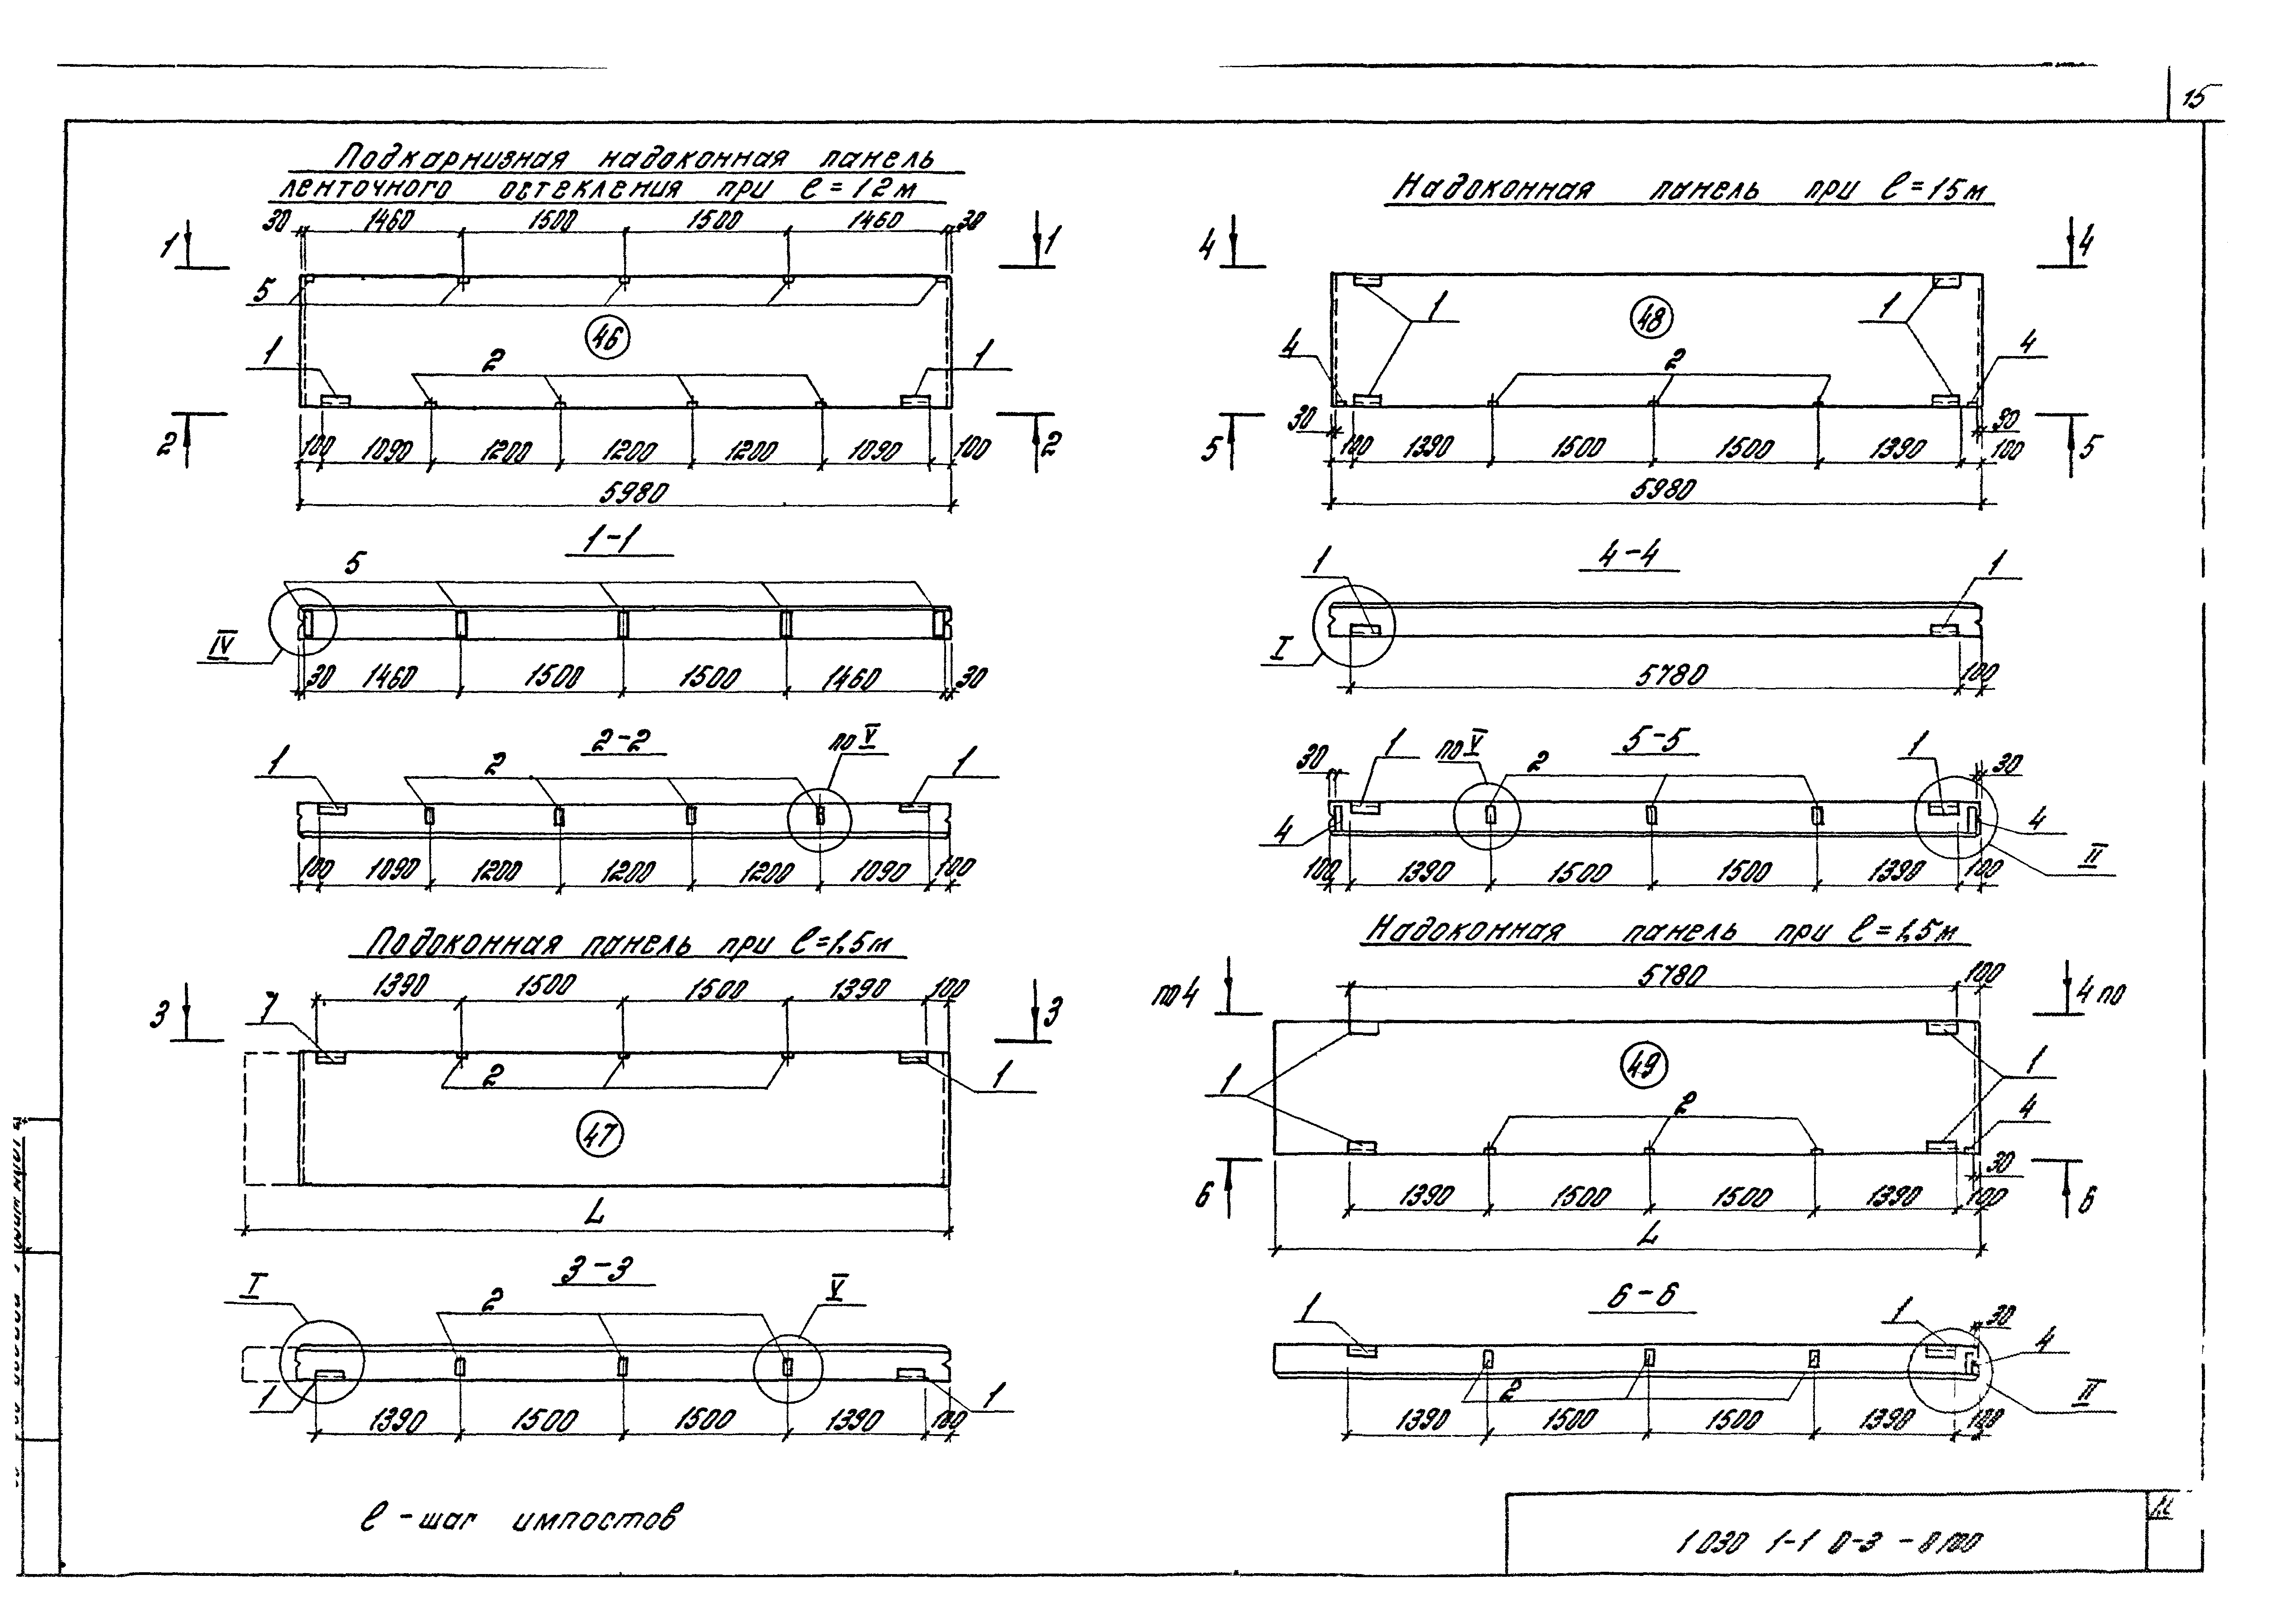 15
Подкарнизная надоконная панель
ленточного остекления при ℓ = 12 м
30 1460 1500 1500 1460 30
1 1
5
46
1 2 1
2 2
100 1090 1200 1200 1200 1090 100
5980
1-1
5
IV
30 1460 1500 1500 1460 30
2-2
по V
1 2 1
100 1090 1200 1200 1200 1090 100
Подоконная панель при ℓ=1,5м
1390 1500 1500 1390 100
3 3
1
2 1
47
L
3-3
I 2 V
1 1
1390 1500 1500 1390 100
ℓ - шаг импостов
Надоконная панель при ℓ=15м
4 4
48
1 1
4 2 4
30 30
5 5
100 1390 1500 1500 1390 100
5980
4-4
1 1
I
5780 100
5-5
30 1 по V 2 1 30
4 4
II
100 1390 1500 1500 1390 100
Надоконная панель при ℓ=1,5м
5780 100
по 4 4 по
49
1 1
2 4
30
6 6
1390 1500 1500 1390 100
L
6-6
1 1 30
4
2
II
1390 1500 1500 1390 100
1 030 1-1 0-3 -